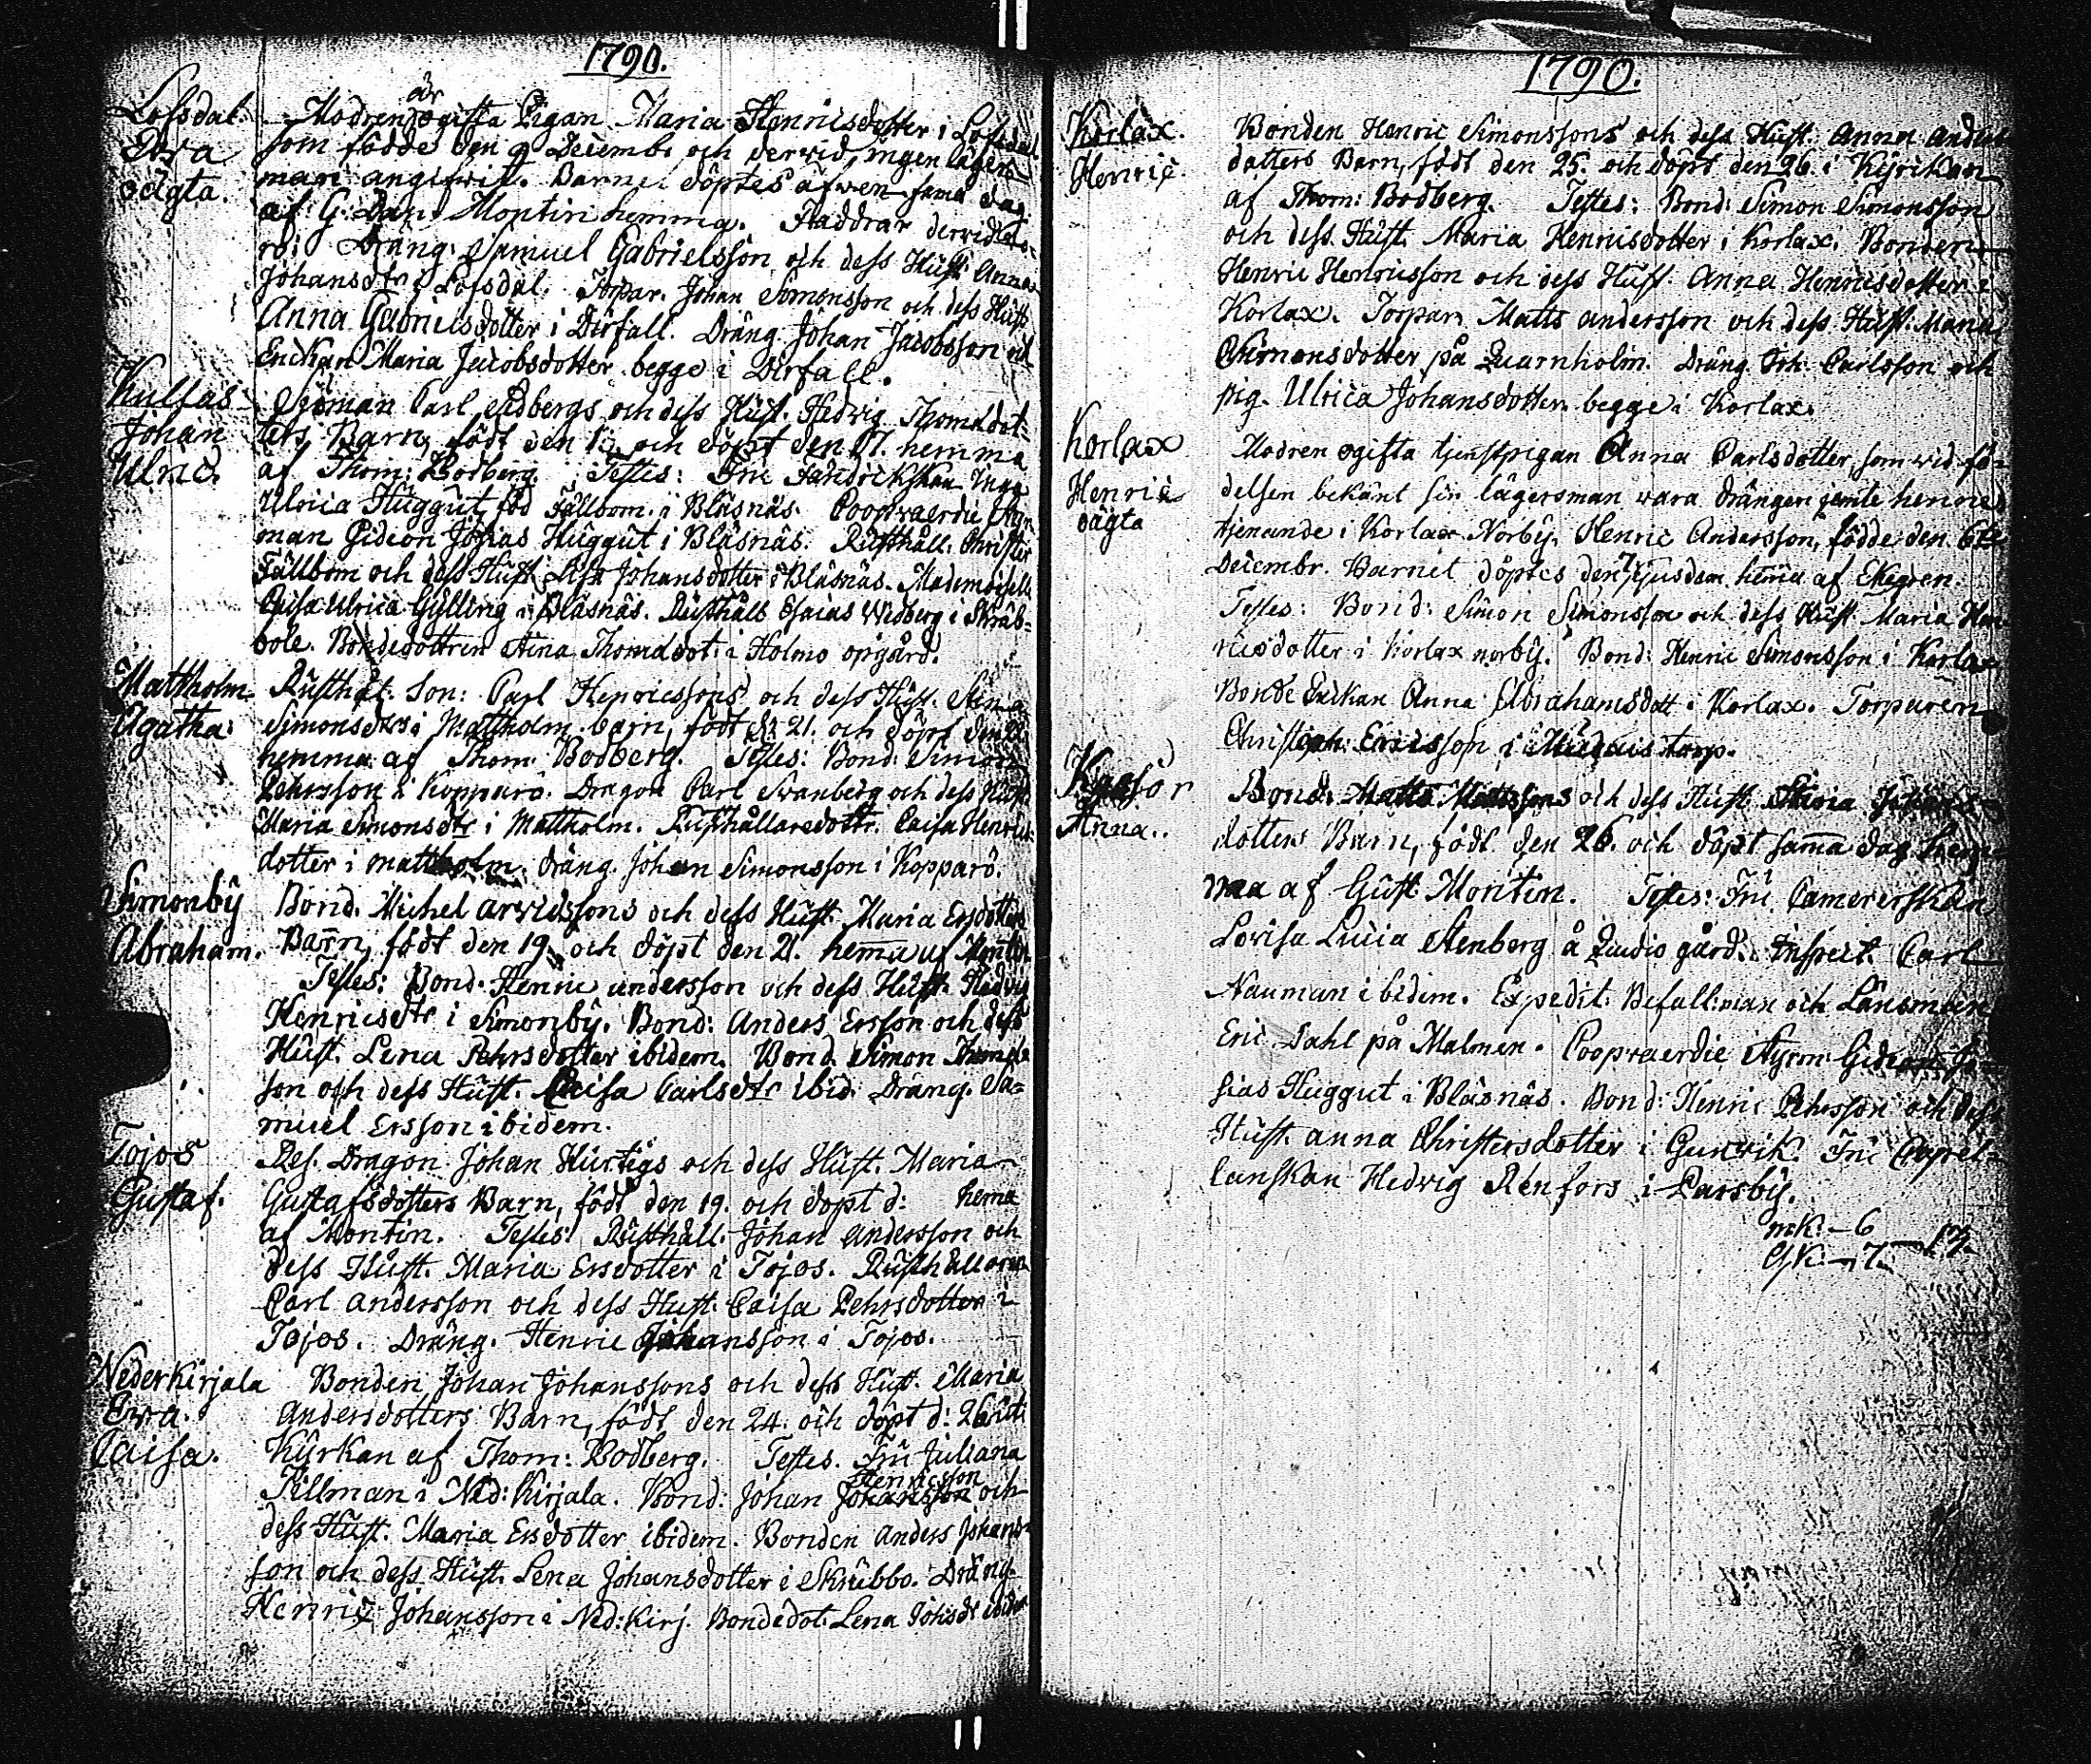 1790.
Lofsdal. Modren är ogifta Pigan Maria Henricsdotter i Lofsdal
Ewa som födde den 9 Decembr och derwid ingen lägers-
oägta. man angifwit. Barnet döptes äfwen sama dag
af G: Dan: Montin hemma. Faddrar derwid wo-
ro: Dräng: Samuel Gabrielsson och dess Hust. Anna
Johansdtr i Lofsdal. Torpar. Johan Simonsson och dess Hust.
Anna Gabrielsdotter i Dirfall. Dräng Johan Jacobsson och
Enckan Maria Jacobsdotter begge i Dirfall.
Sjöman Carl Edbergs och dess Hust. Hedvig Thomædot-
Johan ters Barn, födt den och döpt den 17. hemma
Ulric. af Thom: Bodberg. Testes: Fru
Ulrica Huggut, föd Fällbom i Bläsnäs. Coopvaerdie Styr-
man Gideon Josias Huggut i Bläsnäs. Rusthåll. Christer
Fällbom och dess Hust. Lisa Johansdotter i Bläsnäs. Mademoiselle
Caisa Ulrica Gylling i Bläsnäs. Rusthåll Esaias Widberg i Skräb-
bole. Bondedottren Stina Thomædot: i Holmo opgård.
Mattholm Rusthåt. Son: Carl Henricssons och dess Hust. Stina
Agatha. Simonsdtrs i Mattholm barn, födt d: 21. och döpt den
hemma af Thom: Bodberg. Testes: Bond: Simon
Pehrsson i Kopparö. Dragon Carl Svanberg och dess Hust.
Maria Simonsdtr i Mattholm. Rusthållaredottr. Caisa Henrics-
dotter i mattholm. dräng. Johan Simonsson i Kopparö.
Simonby Bond. Michel arvidssons och dess Hust. Maria Ersdotters
Abraham. Barn, födt den 19. och döpt den 21. hema af Montin.
Testes: Bond. Henric andersson och dess Hust. Hedvig
Henricsdtr i Simonby. Bond: Anders Ersson och dess
Hust. Lena Pehrsdotter ibidem. Bond. Simon Thomas-
son och dess Hust. Caisa Carlsdtr ibid: Dräng. Sa-
muel Ersson ibidem.
Tojos Res. Dragon Johan Hurtigs och dess Hust. Maria
Gustaf. Gustafsdotters Barn, födt den 19. och döpt d: hema
af Montin. Testes: Rusthåll. Johan Andersson och
dess Hust. Maria Ersdotter i Tojos. Rusthållaren
Carl andersson och dess Hust. Caisa Pehrsdotter i
Tojos. Dräng. Henric Johansson i Tojos.
Nederkirjala Bonden Johan Johanssons och dess Hust. Maria
Ewa. Andersdotters Barn, födt den 24. och döpt d: 26 uti
Caisa. Kyrkan af Thom: Bodberg. Testes. Fru Juliana
Henricsson
Tillman i Ned: Kirjala. Bond: Johan Johansson och
dess Hust. Maria Ersdotter ibidem. Bonden Anders Johans-
son och dess Hust. Lena Johansdotter i Skräbbo. Dräng
Henric Johansson i Ned: Kirj. Bondedot. Lena Johsdt ibidem
1790.
Korlax. Bonden Henric Simonssons och dess Hust. Anna Anders
Henric. dotters Barn, födt den 25. och döpt den 26. i Kyrckan
af Thom: Bodberg. Testes: Bond: Simon Simonsson
och dess Hust. Maria Henricsdotter i Korlax. Bonden
Henric Henricsson och dess Hust. Anna Henricsdotter i
Korlax. Torpare Matts andersson och dess Hust. Maria
Simonsdotter på Quarnholm. Dräng Joh: Carlsson och
pig. Ulrica Johansdotter begge i Korlax.
Korlax Modren ogifta tjenstpigan Anna Carlsdotter, som wid fö-
Henric delsen bekänt sin lägersman wara drängen jemte henne
oägta tjenande i Korlax Norby, Henric Andersson, födde den 6te
Decembr. Barnet döptes den 7 Ejusdem hema af Ekegren.
Testes: Bond: Simon Simonsson och dess Hust. Maria Hen-
ricsdotter i Korlax norby. Bond: Henric Simonsson i Korlax
Bonde Enckan Anna Abrahamsdott i Korlax. Torparen
Christoph: Ericsson i torp.
Anna. Bond: Matts Mattssons och dess Hust. Maria Johans-
dotters Barn, födt den 26. och döpt sama dag hem-
ma af Gust. Montin. Testes: Fru Camererskan
Lovisa Lucia Stenberg å Qvidio gård. Inspect. Carl
Nauman ibidem. Expedit: Befall:man och Länsman
Eric Dahl på Malmen. Coopvaerdie Styrm: Gideon Jo-
sias Huggut i Bläsnäs. Bond: Henric Pehrsson och dess
Hust. anna Christersdotter i Gunvik. Fru Capel-
lanskan Hedvig Renfors i Parsby.
mk. – 6
qk. – 7. – 13.